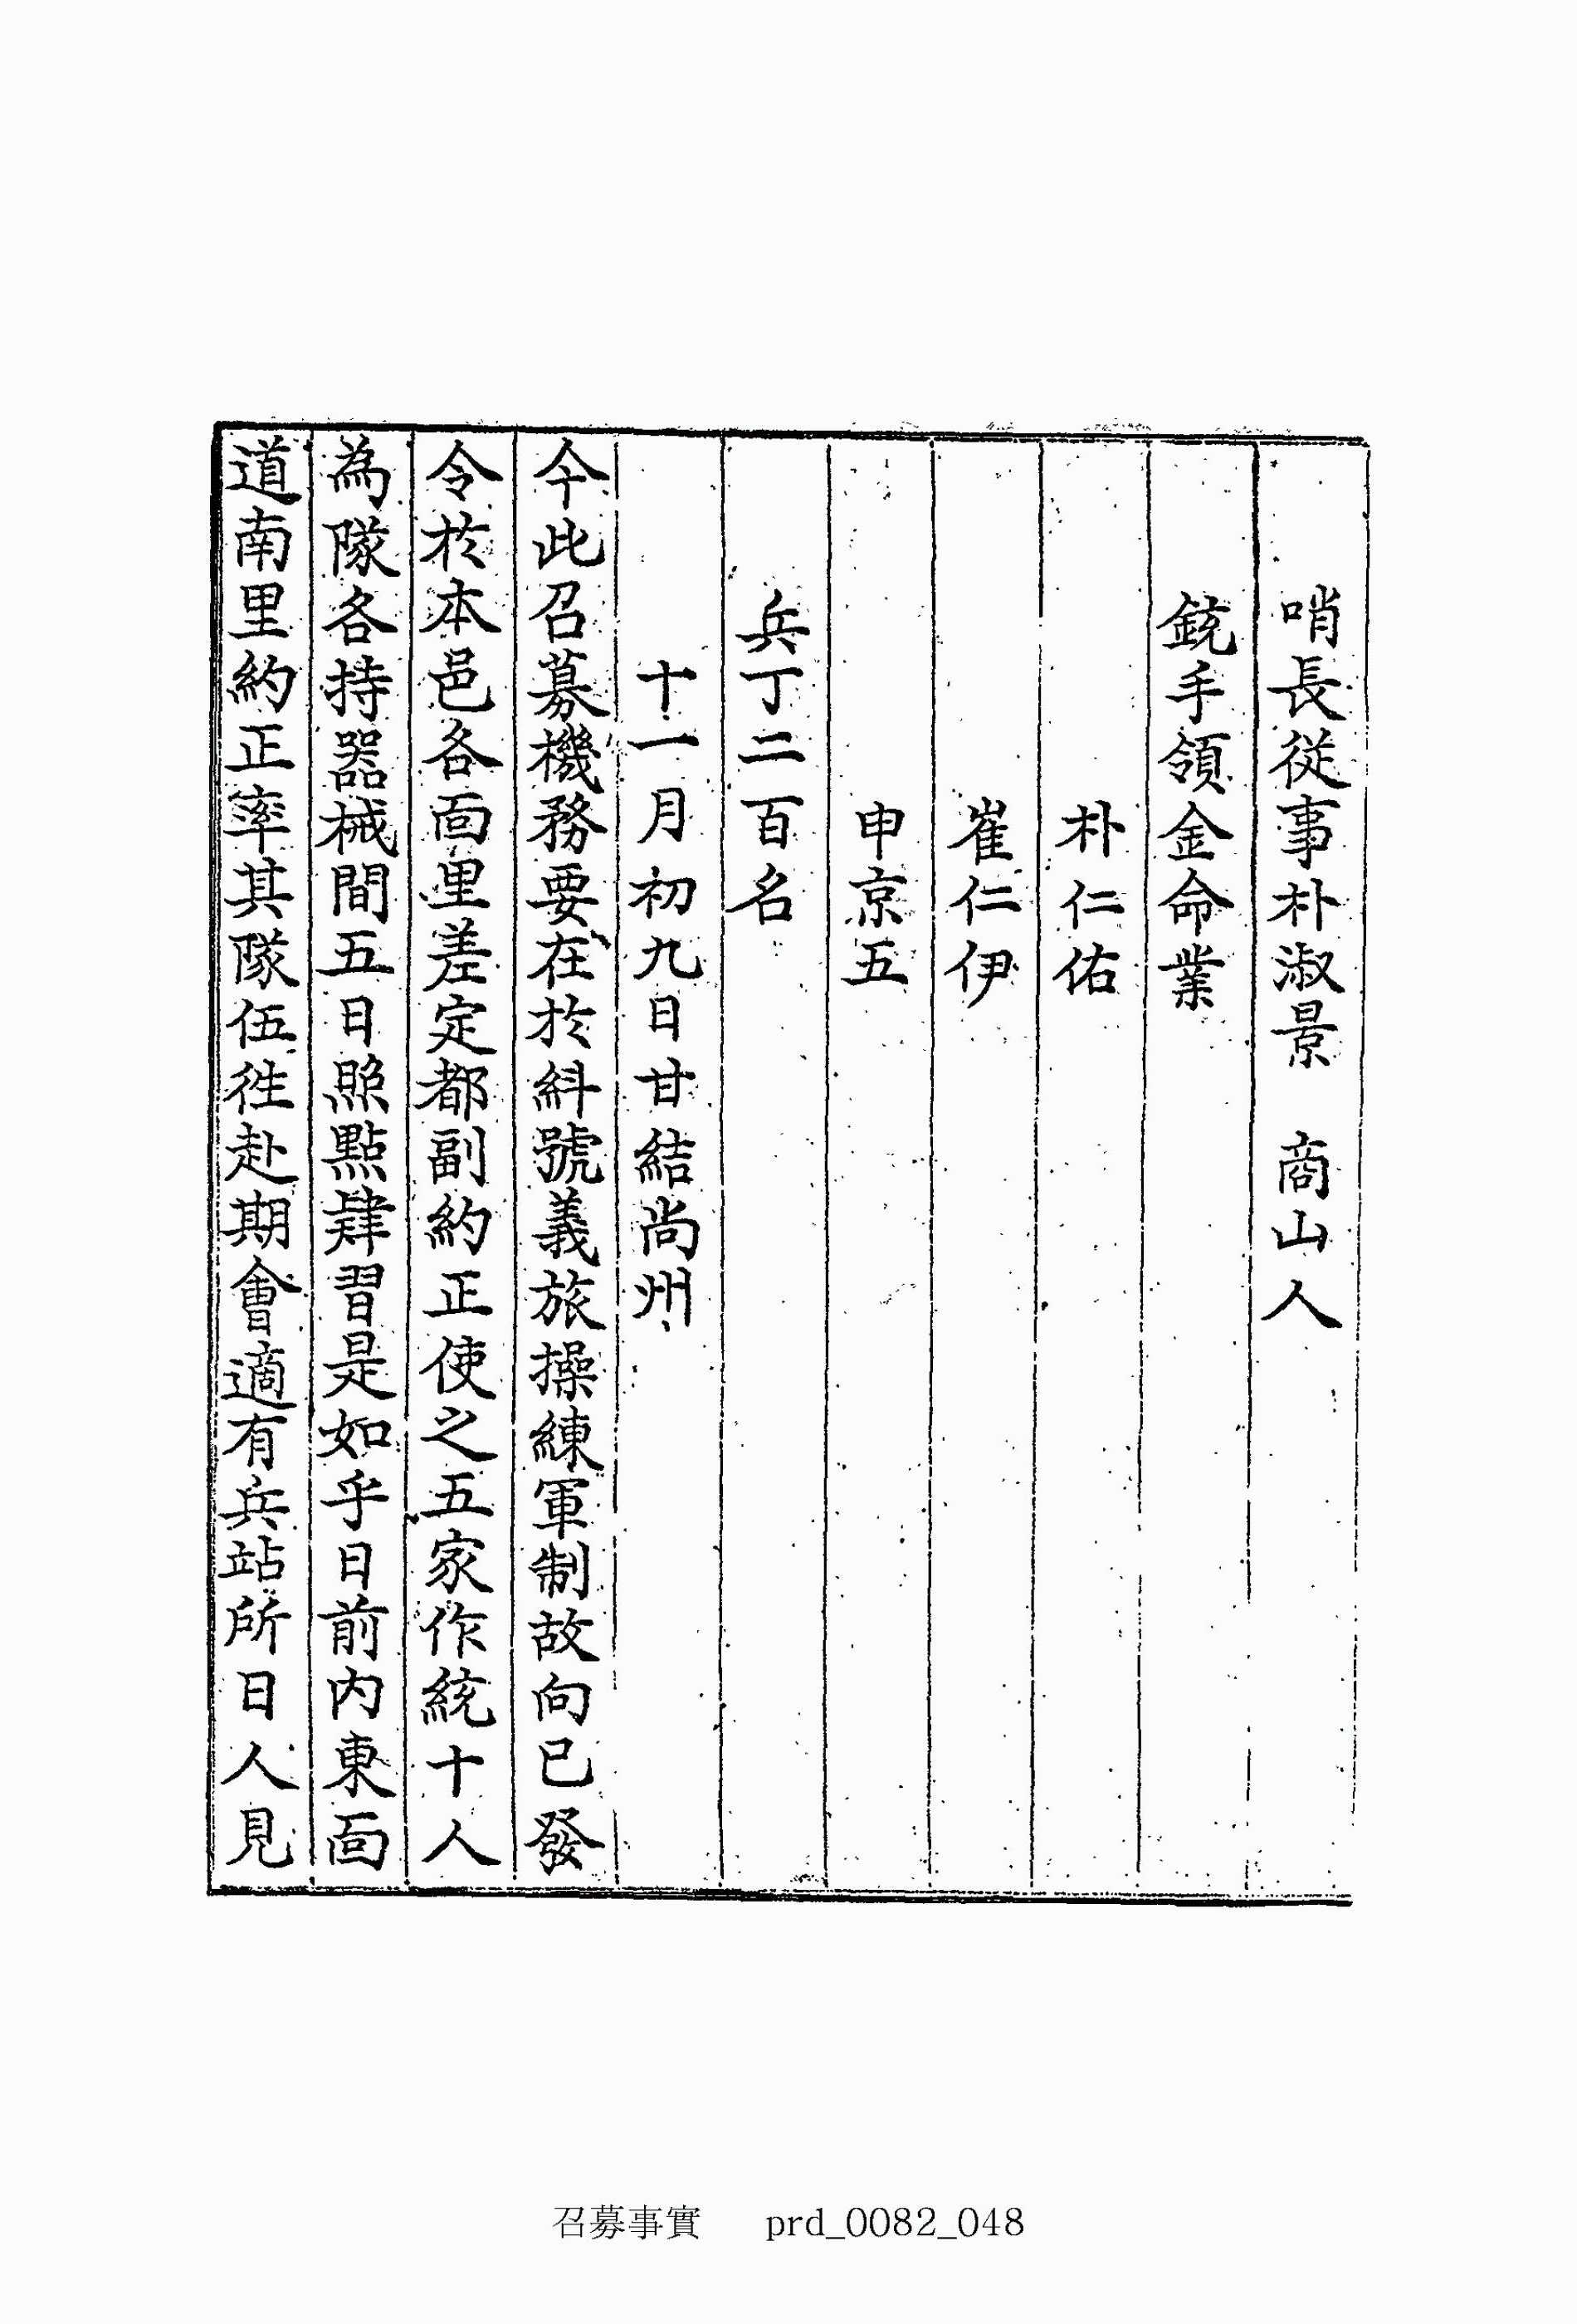 哨長從事朴淑景　商山人
銃手領金命業
朴仁佑
崔仁伊
申京五
兵丁二百名
十一月初九日甘結尚州
今此召募機務要在於糾號義旅操練軍制故向已發
令於本邑各面里差定都副約正使之五家作統十人
為隊各持器械間五日照點肄習是如乎日前内東面
道南里約正率其隊伍徃赴期會適有兵站所日人見
召募事實　prd_0082_048